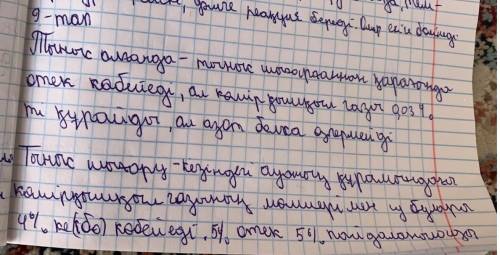 дәлме реакция береді.
9-тап
Тыныс алғанда - тыныс шығарғаннан қарағанда
отек көбейеді, ал көмірқышқыл газы 0,03 %
ті құрайды, ал азот болса өзгермейді
Тыныс шығару - кезіндегі ауаның құрамындағы
көмірқышқыл газының мөлшері мен су булары
4%. ке(ббо) көбейеді. 5% отек 5%. пайдаланылады